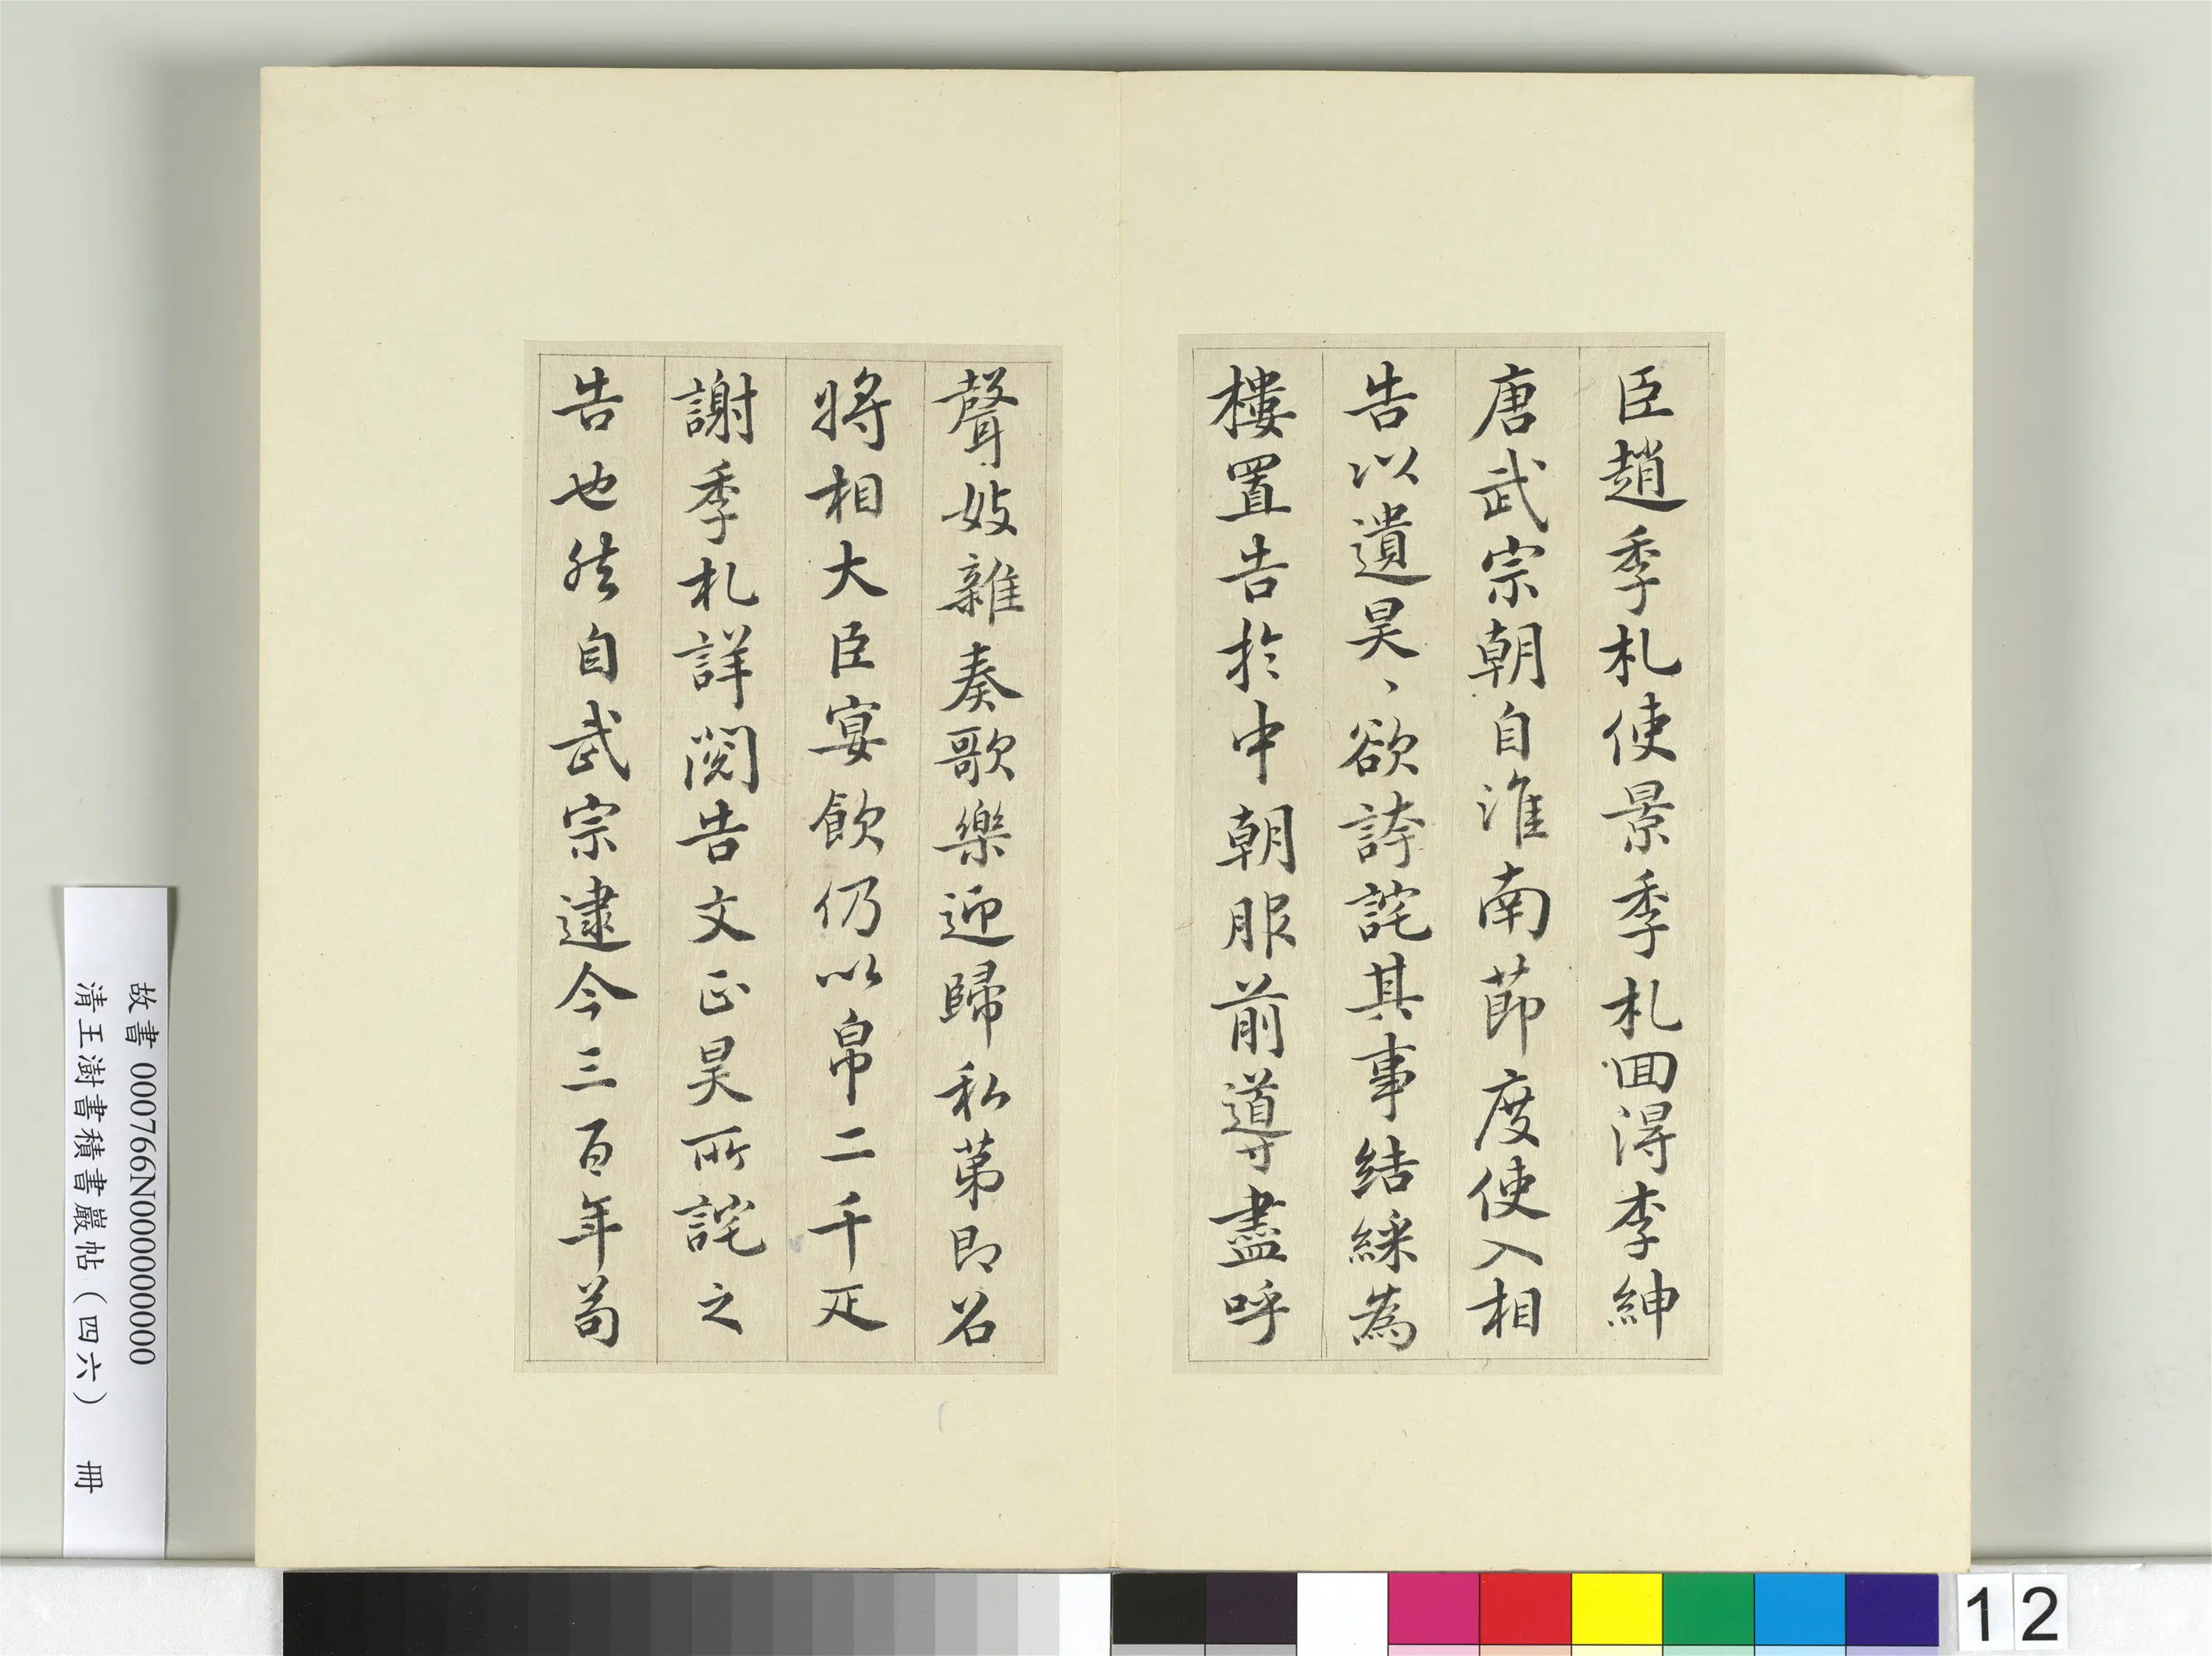 臣趙季札使景季札回得李紳
唐武宗朝自淮南節度使入相
告以遺昊、欲誇詫其事結綵為
樓置告於中朝服前導盡呼
聲妓雜奏歌樂迎歸私第即召
將相大臣宴飲仍以帛二千疋
謝季札詳閱告文正昊所詫之
告也然自武宗逮今三百年苟
故書000766N000000000
清王澍書積書巖帖（四六） 冊
12